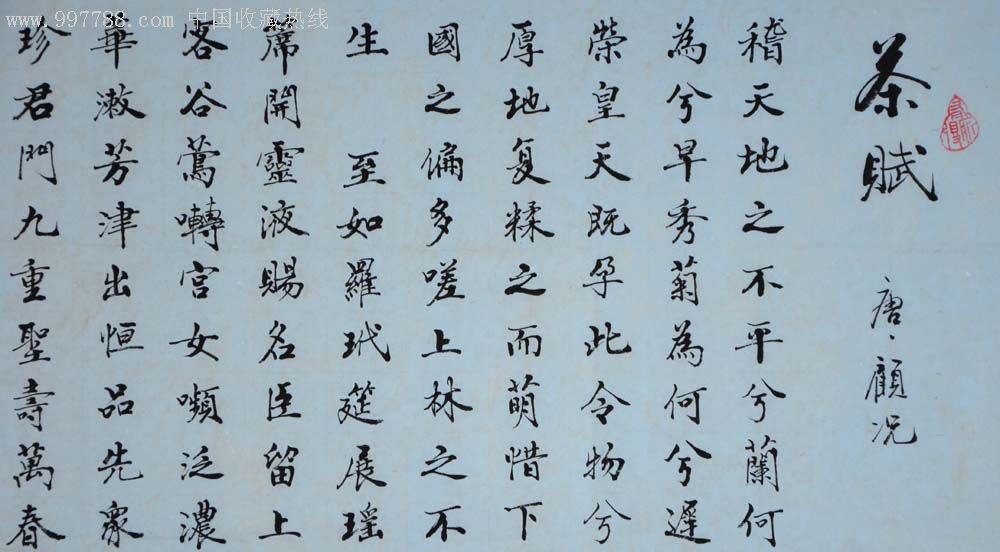 www.997788.com 中国收藏热线
茶賦
唐、顧况
稽天地之不平兮蘭何
為兮早秀菊為何兮遲
榮皇天既孕此令物兮
厚地复糅之而萌惜下
國之偏多嗟上林之不
生 至如羅玳筵展瑶
席開靈液賜名臣留上
客谷鶯囀宫女嚬泛濃
華漱芳津出恒品先衆
珍君門九重聖壽萬春